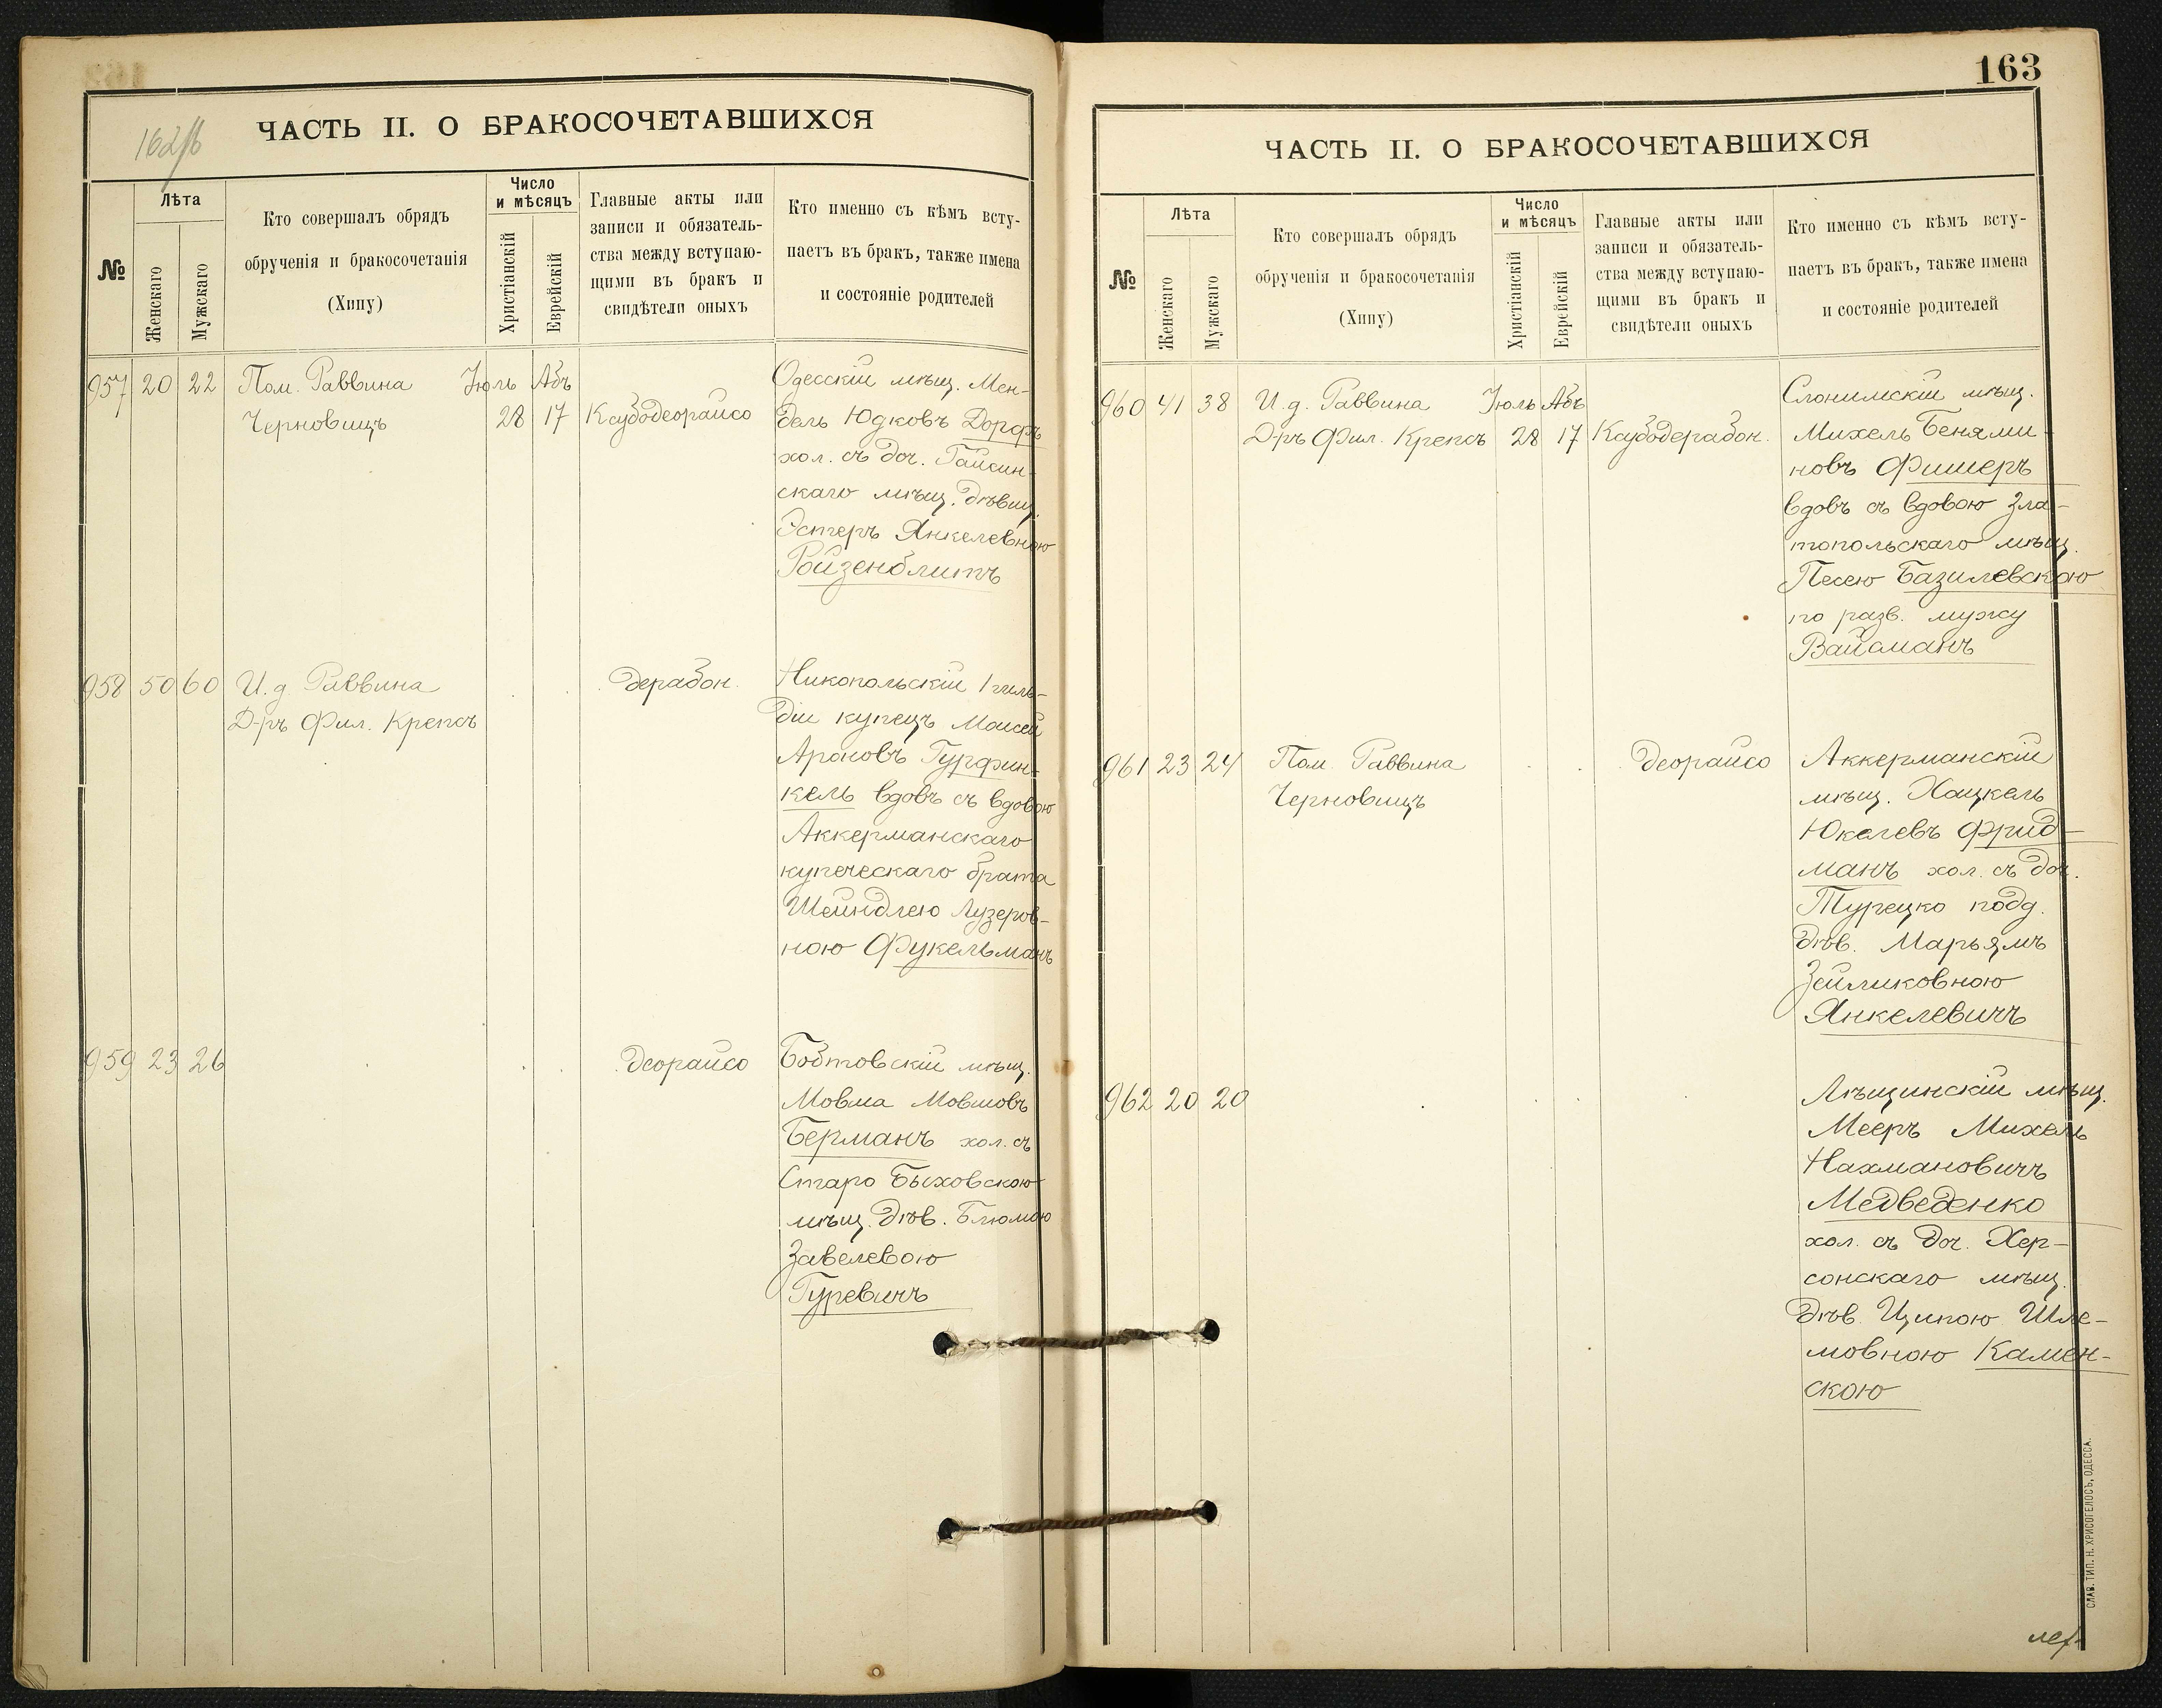 162/б
ЧАСТЬ II. О БРАКОСОЧЕТАВШИХСЯ
№
Лѣта
Женскаго
Мужскаго
Кто совершалъ обрядъ
обрученія и бракосочетанія
(Хипу)
Число
и мѣсяцъ
Христіанскій
Еврейскій
Главные акты или
записи и обязатель-
ства между вступаю-
щими въ бракъ и
свидѣтели оныхъ
Кто именно съ кѣмъ всту-
паетъ въ бракъ, также имена
и состояніе родителей
957 20 22 Пом. Раввина Іюль Абъ
Черновицъ 28 17 Ксубодеорайсо
Одесскій мѣщ. Мен-
дель Юдковъ Дорфъ
хол. съ доч. Гайсин-
скаго мѣщ. дѣвиц.
Эстеръ Янкелевною
Ройзенблитъ
958 50 60 И. д. Раввина дерабон.
Д-ръ Фил. Крепсъ
Никопольскій 1 гиль-
діи купецъ Моисей
Ароновъ Гурфин-
кель вдовъ съ вдовою
Аккерманскаго
купеческаго брата
Шейндлею Лузеров-
ною Фукельманъ
959 23 26 деорайсо
мѣщ.
Мовша Мовшовъ
Берманъ хол. съ
Старо Быховскою
мѣщ. дѣв. Блюмою
Завелевою
Гуревичъ
163
ЧАСТЬ II. О БРАКОСОЧЕТАВШИХСЯ
№
Лѣта
Женскаго
Мужскаго
Кто совершалъ обрядъ
обрученія и бракосочетанія
(Хипу)
Число
и мѣсяцъ
Христіанскій
Еврейскій
Главные акты или
записи и обязатель-
ства между вступаю-
щими въ бракъ и
свидѣтели оныхъ
Кто именно съ кѣмъ всту-
паетъ въ бракъ, также имена
и состояніе родителей
960 41 38 И. д. Раввина Іюль Абъ
Д-ръ Фил. Крепсъ 28 17 Ксубодерабон.
Слонимскій мѣщ.
Михель Бенями-
новъ Фишеръ
вдовъ съ вдовою Зла-
топольскаго мѣщ.
Песею Базилевскою
по разв. мужу
Вайсманъ
961 23 24 Пом. Раввина деорайсо
Черновицъ
Аккерманскій
мѣщ. Хацкель
Юкелевъ Фрид-
манъ хол. съ доч.
Турецко подд.
дѣв. Марьямъ
Зейликовною
Янкелевичъ
962 20 20
Лѣщинскій мѣщ.
Мееръ Михель
Нахмановичъ
Медведенко
хол. съ доч. Хер-
сонскаго мѣщ.
дѣв. Ципою Шле-
мовною Камен-
скою
СЛАВ. ТИП. Н. ХРИСОГЕЛОСЪ, ОДЕССА.